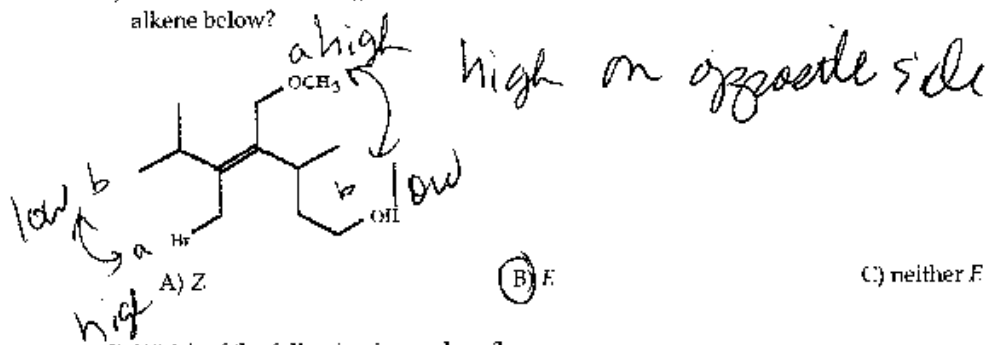 alkene below?
a high
high on opposite side
OCH₃
low b
b low
Br a
OH
high
A) Z
B) E
C) neither E